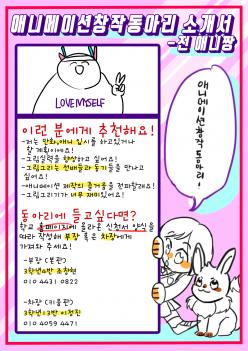 애니메이션창작동아리 소개서
-전 애니짱
LOVE MYSELF
애니메이션창작동아리!
이런 분에게 추천해요!
-저는 만화,애니 입시를 하고있거나
할 계획이에요!
-그림실력을 향상하고 싶어요!
-그림그리는 선배들과 동기들을 만나고
싶어요!
-애니메이션 제작의 즐거움을 전파할래요!
-그림그리기가 너무 재미있어요!
동아리에 들고싶다면?
학교 홈페이지에 올라온 신청서 양식을
따라 작성해 부장 혹은 차장에게
가져와 주세요!
-부장 (본관)
3학년4반 조정현
010 4431 0822
-차장 (키움관)
3학년13반 이정진
010 4059 4471